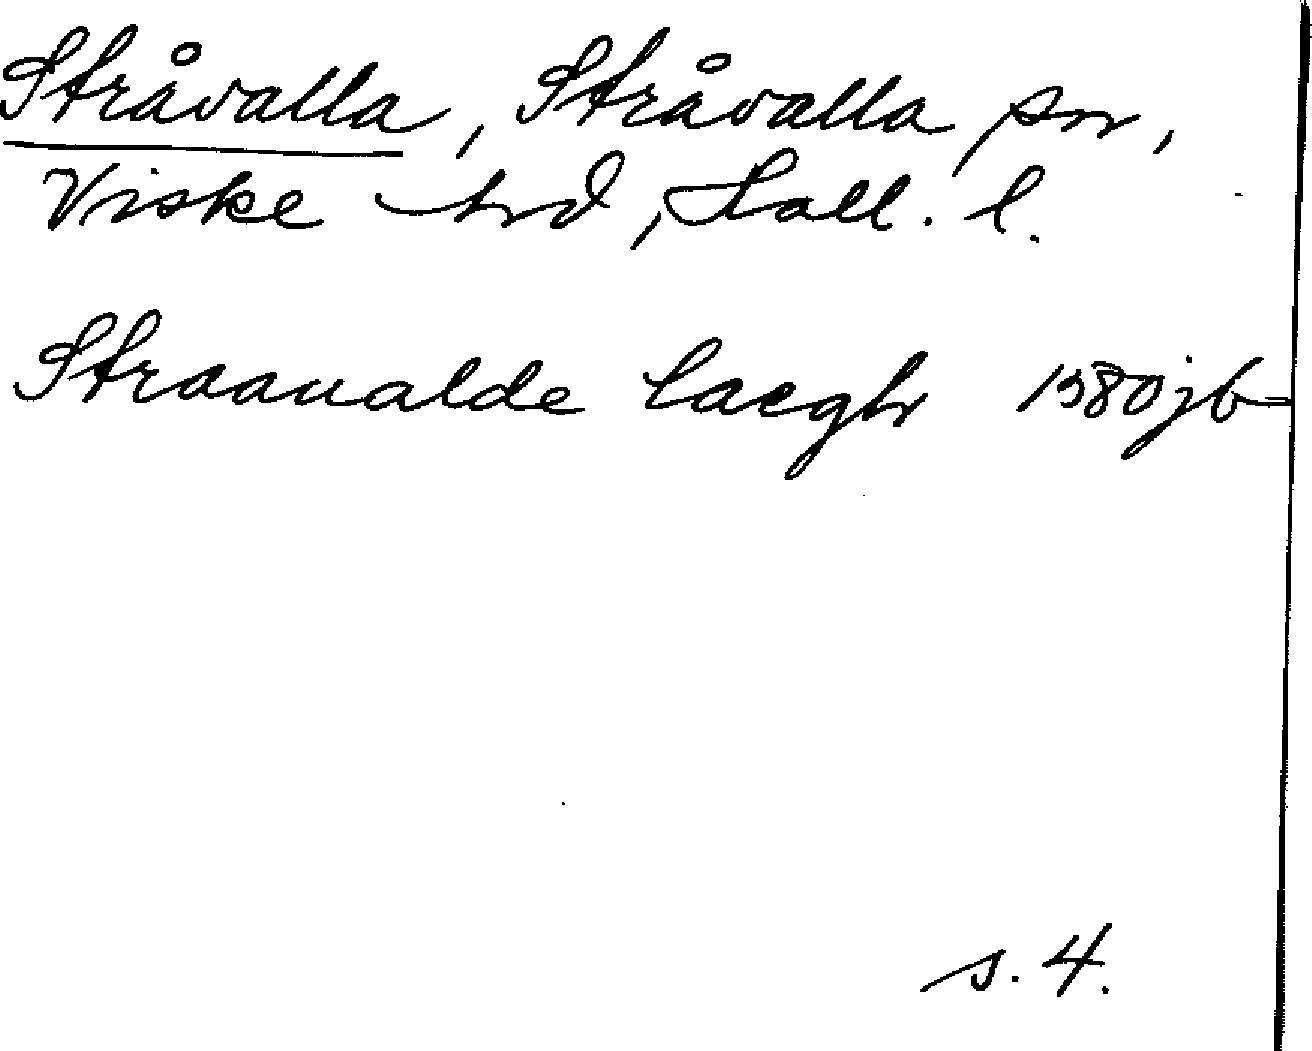 Stråvalla, Stråvalla sn,
Viske hrd, Hall. l.
Straaualde laegh 1580 jb
s. 4.